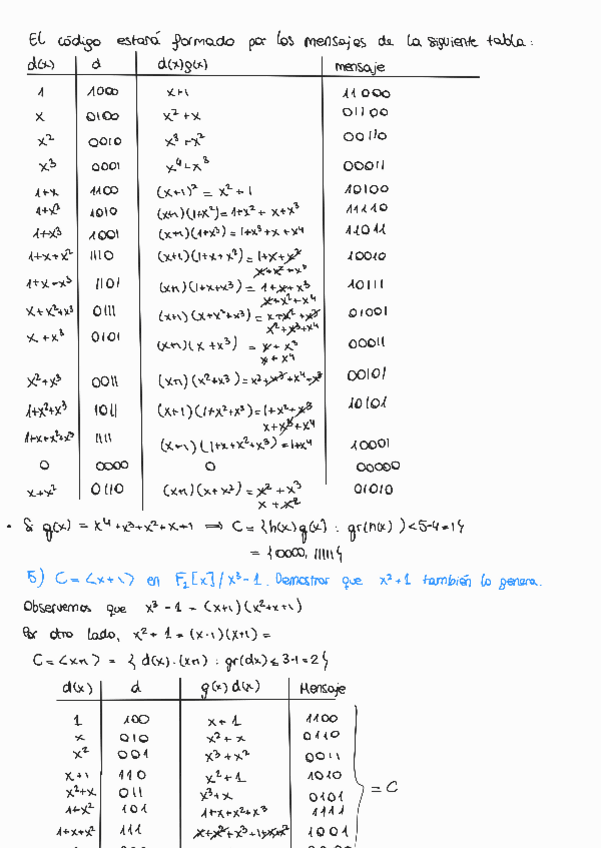 El código estará formado por los mensajes de la siguiente tabla:
d(x) d d(x)g(x) mensaje
1 1000 x+1 11000
x 0100 x²+x 01100
x² 0010 x³+x² 00110
x³ 0001 x⁴+x³ 00011
1+x 1100 (x+1)² = x²+1 10100
1+x² 1010 (x+1)(1+x²)=1+x²+x+x³ 11110
1+x³ 1001 (x+1)(1+x³)=1+x³+x+x⁴ 11011
1+x+x² 1110 (x+1)(1+x+x²)=1+x+x² 10010
x+x²+x³
1+x+x³ 1101 (x+1)(1+x+x³) = 1+x+x³ 10111
x+x²+x⁴
x+x²+x³ 0111 (x+1)(x+x²+x³)=x+x²+x³ 01001
x²+x³+x⁴
x+x³ 0101 (x+1)(x+x³) = x+x³ 00011
x+x⁴
x²+x³ 0011 (x+1)(x²+x³)=x²+x³+x⁴+x³ 00101
1+x²+x³ 1011 (x+1)(1+x²+x³)=1+x²+x³ 10101
x+x³+x⁴
1+x+x²+x³ 1111 (x+1)(1+x+x²+x³)=1+x⁴ 10001
0 0000 0 00000
x+x² 0110 (x+1)(x+x²) = x²+x³ 01010
x+x²
• Si g(x) = x⁴+x³+x²+x+1 ⟹ C = {h(x)g(x) : gr(h(x))<5-4=1}
= {0000, 11111}
5) C=<x+1> en F₂[x]/x³-1. Demostrar que x²+1 también lo genera.
Observemos que x³-1 = (x+1)(x²+x+1)
Por otro lado, x²+1 = (x+1)(x+1) =
C=<x+1> = { d(x)·(x+1) : gr(dx)≤3-1=2}
d(x) d g(x)d(x) Mensaje
1 100 x+1 1100
x 010 x²+x 0110
x² 001 x³+x² 0011
x+1 110 x²+1 1010
x²+x 011 x³+x 0101 = C
1+x² 101 1+x+x²+x³ 1111
1+x+x² 111 x+x²+x³+1+x+x² 1001